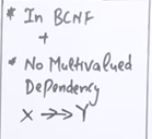 * In BCNF
+
* No Multivalued
Dependency
X →→ Y